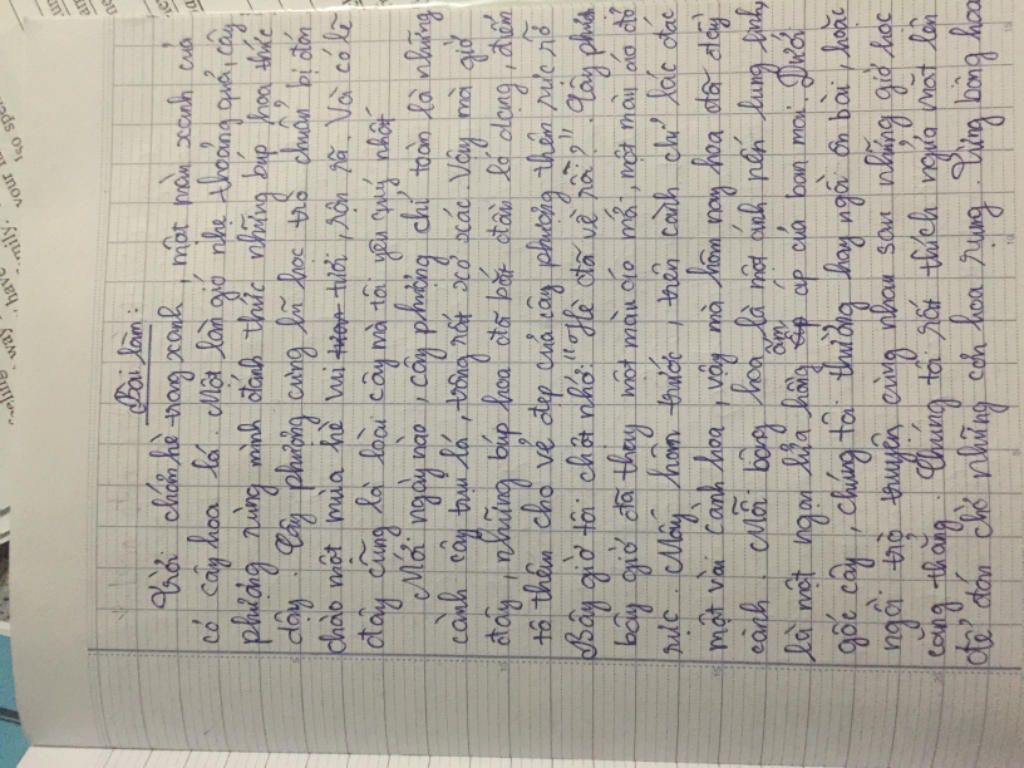 Bài làm:
Trời chớm hè trong xanh, một màn xanh của
cỏ cây hoa lá. Một làn gió nhẹ thoảng qua, cây
phượng rùng mình đánh thức những búp hoa thức
dậy. Cây phượng cùng lũ học trò chuẩn bị đón
chào một mùa hè vui tươi, rộn rã. Và có lẽ
đây cũng là loài cây mà tôi yêu quý nhất
Mới ngày nào, cây phượng chỉ toàn là những
cành cây trụi lá, trông rất xơ xác. Vậy mà giờ
đây, những búp hoa đã bắt đầu ló dạng, điểm
tô thêm cho vẻ đẹp của cây phượng thêm rực rỡ
Bây giờ tôi chợt nhớ: "Hè đã về rồi?". Cây phượng
bây giờ đã thay một màn áo mới, một màu áo đỏ
rực. Mấy hôm trước, trên cành chỉ lác đác
một vài cành hoa, vậy mà hôm nay hoa đã đầy
cành. Mỗi bông hoa là một ánh nến lung linh,
là một ngọn lửa hồng ấm áp của ban mai. Dưới
gốc cây, chúng tôi thường hay ngồi ôn bài, hoặc
ngồi trò truyện cùng nhau sau những giờ học
căng thẳng. Chúng tôi rất thích ngửa mặt lên
để đón chờ những cơn hoa rụng. Từng bông hoa